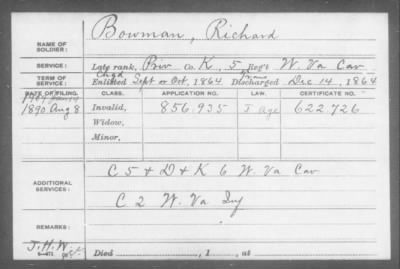 Bowman, Richard
NAME OF SOLDIER:
SERVICE: Late rank, Priv Co. K, 5 Reg't W. Va Cav
TERM OF SERVICE: Enlisted Sept or Oct, 1864 Discharged Dec 14, 1864
DATE OF FILING. CLASS. APPLICATION NO. LAW. CERTIFICATE NO.
1890 Aug 8 Invalid, 856.935 J Age 622.726
Widow,
Minor,
ADDITIONAL SERVICES: C 5 & D & K 6 W. Va Cav
C 2 W. Va Inf
REMARKS:
J.H.W.
Died , 1 , at